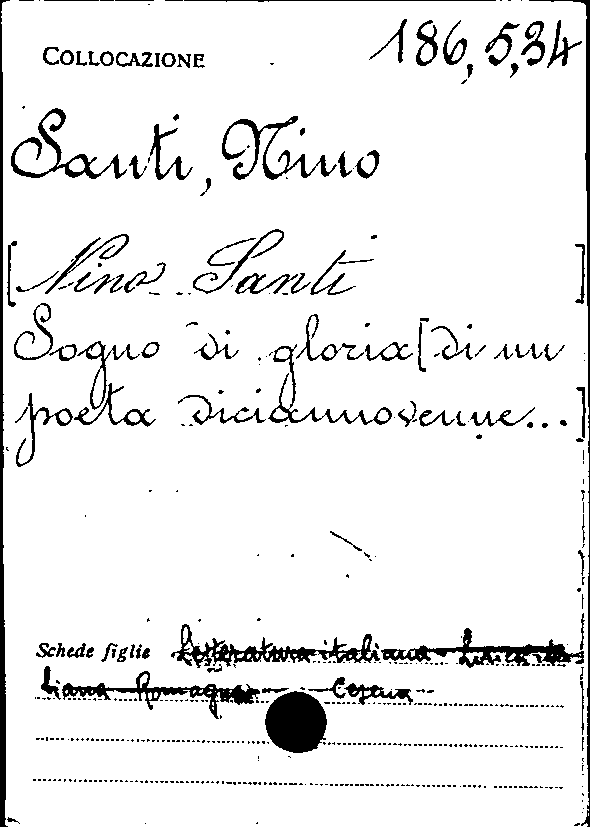 COLLOCAZIONE 186,5,34
Santi, Nino
[Nino Santi]
Sogno di gloria [di un
poeta diciannovenne...]
Schede figlie Letteratura italiana - Lirica ita
liana Romagna - Cesena